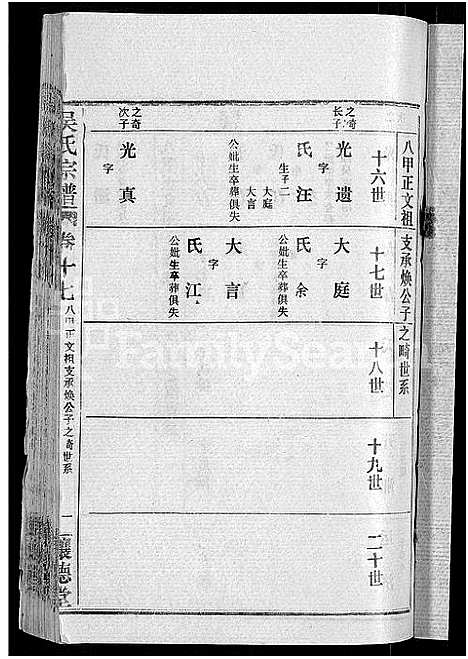 八甲正文祖支承煥公子之畸世系
十六世
之奇長子
光遺
字
氏汪
生子二
大庭
大言
公妣生卒葬俱失
之奇次子
光真
字
十七世
大庭
字
氏余
公妣生卒葬俱失
大言
字
氏江
公妣生卒葬俱失
十八世
十九世
二十世
吳氏宗譜
卷十七
八甲正文祖支承煥公子之奇世系
一
德堂
FamilySearch